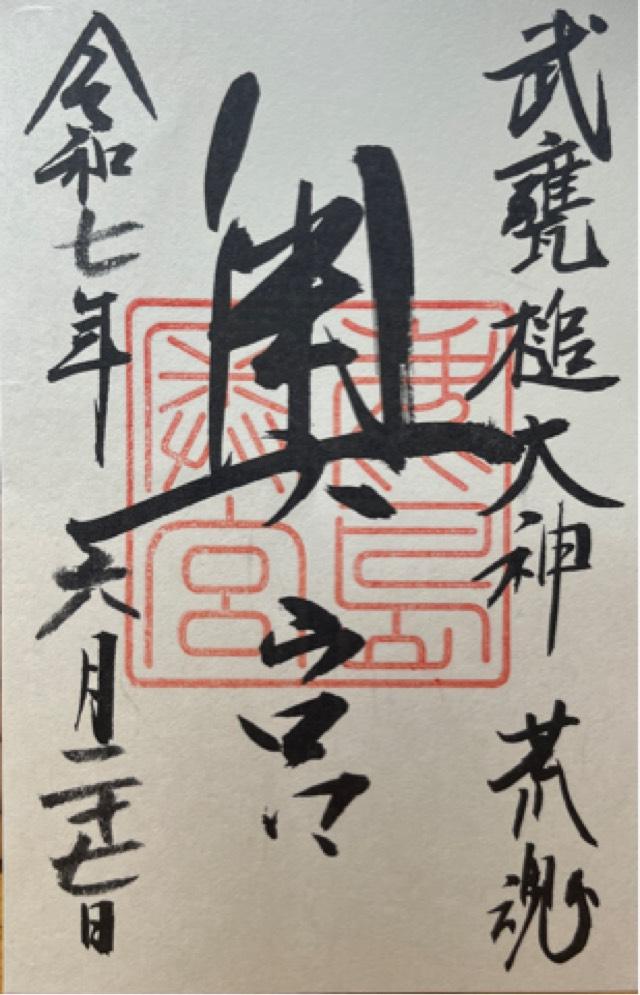 武甕槌大神 荒魂
奥宮
鹿島奥宮
令和七年 六月二十七日